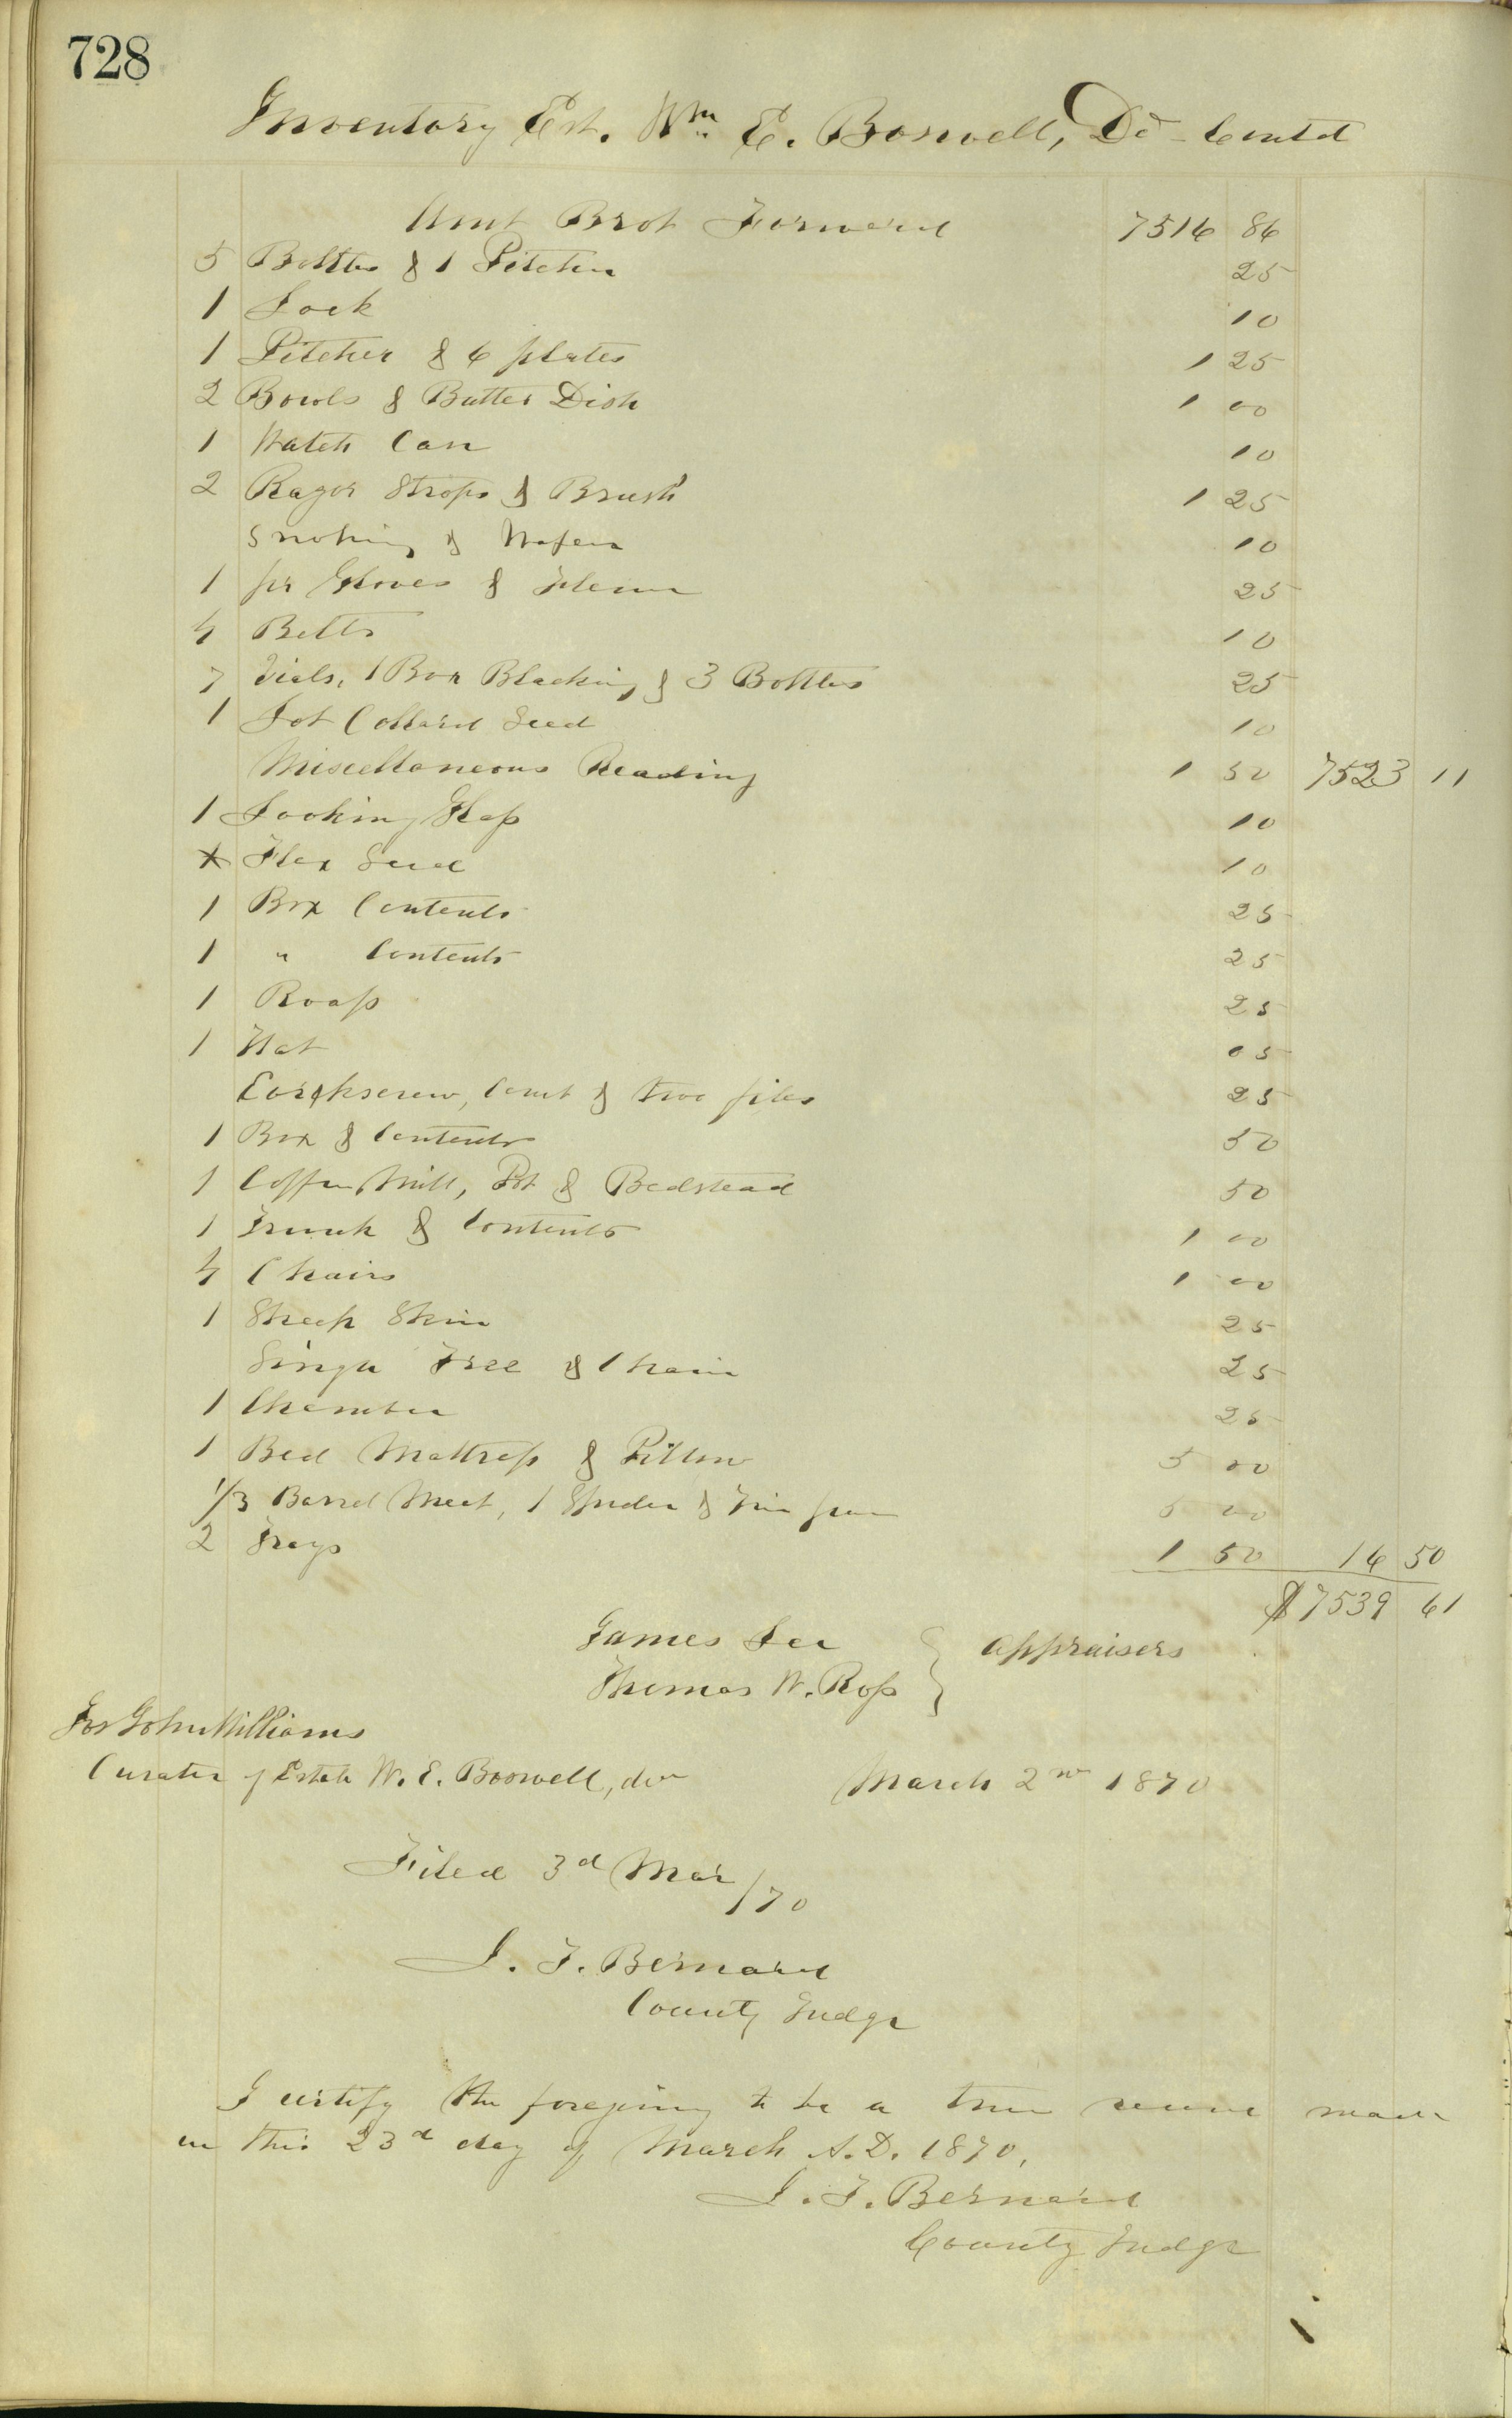 728
Inventory Est. Wm E. Boswell, Decd - Contd
Amt Brot Forward 7516 86
5 Bottles & 1 Pitcher 25
1 Lock 10
1 Pitcher & 6 plates 1 25
2 Bowls & Butter Dish 1 00
1 Watch Case 10
2 Razor Strops & Brush 1 25
Smoking & Wafers 10
1 pr Gloves & Fleam 25
4 Belts 10
7 Vials, 1 Box Blacking & 3 Bottles 25
1 Lot Collard Seed 10
Miscellaneous Reading 1 50 7523 11
1 Looking Glass 10
Flax Seed 10
1 Box Contents 25
1 " Contents 25
1 Rasp 25
1 Hat 05
Corkscrew, Comb & two files 25
1 Box & Contents 50
1 Coffee Mill, Pot & Bedstead 50
1 Trunk & Contents 1 00
4 Chairs 1 00
1 Sheep Skin 25
Single Tree & Chain 25
1 Chamber 25
1 Bed Mattress & Pillow 5 00
1/3 Barrel Meat, 1 Spider & Tin pan 5 00
2 Trays 1 50 16 50
$7539 61
James Lee
Thomas W. Ross } Appraisers
For John Williams
Curator of Estate W. E. Boswell, decd March 2nd 1870
Filed 3d Mar/70
J. T. Bernard
County Judge
I certify the foregoing to be a true record made
on this 23d day of March A.D. 1870.
J. T. Bernard
County Judge